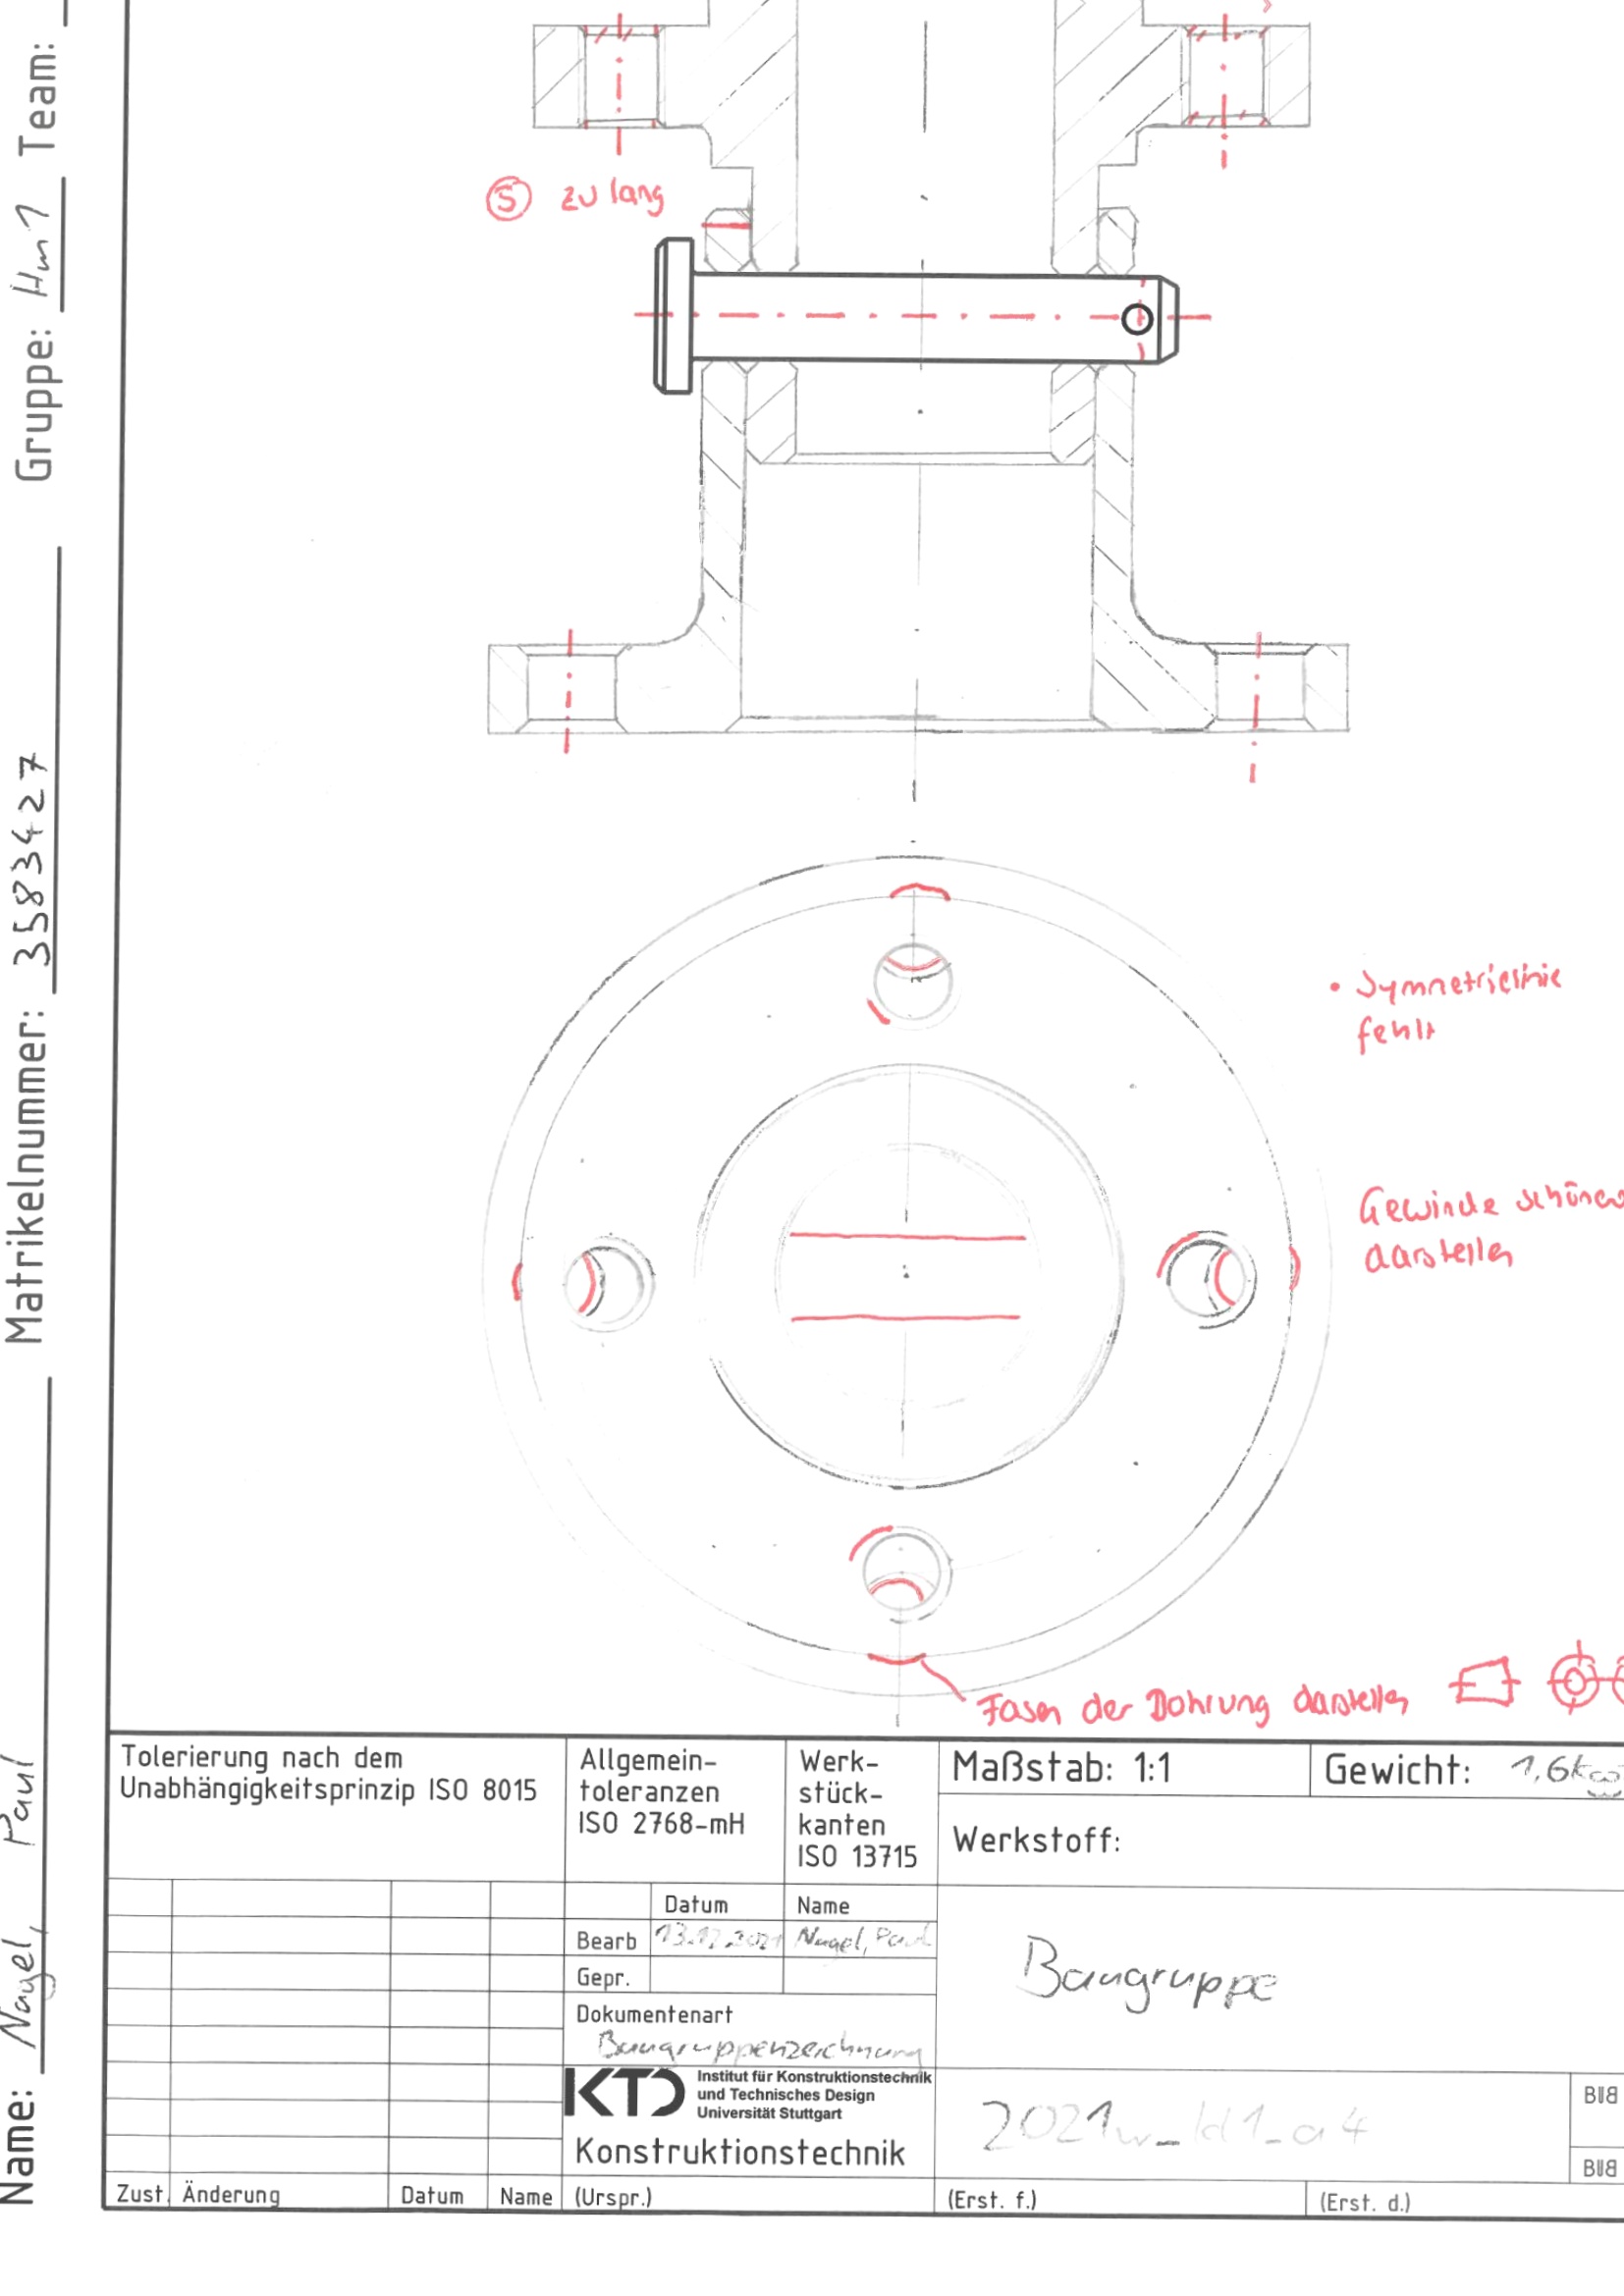 Name: Nagel, Paul Matrikelnummer: 3583427 Gruppe: Hm1 Team:
5 zu lang
• Symmetrielinie
fehlt
Gewinde schöner
darstellen
Fasen der Bohrung darstellen
Tolerierung nach dem
Unabhängigkeitsprinzip ISO 8015
Allgemein-
toleranzen
ISO 2768-mH
Werk-
stück-
kanten
ISO 13715
Maßstab: 1:1
Gewicht: 1,6
Werkstoff:
Datum Name
Bearb 13.12.2021 Nagel, Paul
Gepr.
Dokumentenart
Baugruppenzeichnung
Baugruppe
KTD
Institut für Konstruktionstechnik
und Technisches Design
Universität Stuttgart
Konstruktionstechnik
2021w_kl1_a4
Zust. Änderung Datum Name (Urspr.) (Erst. f.) (Erst. d.)